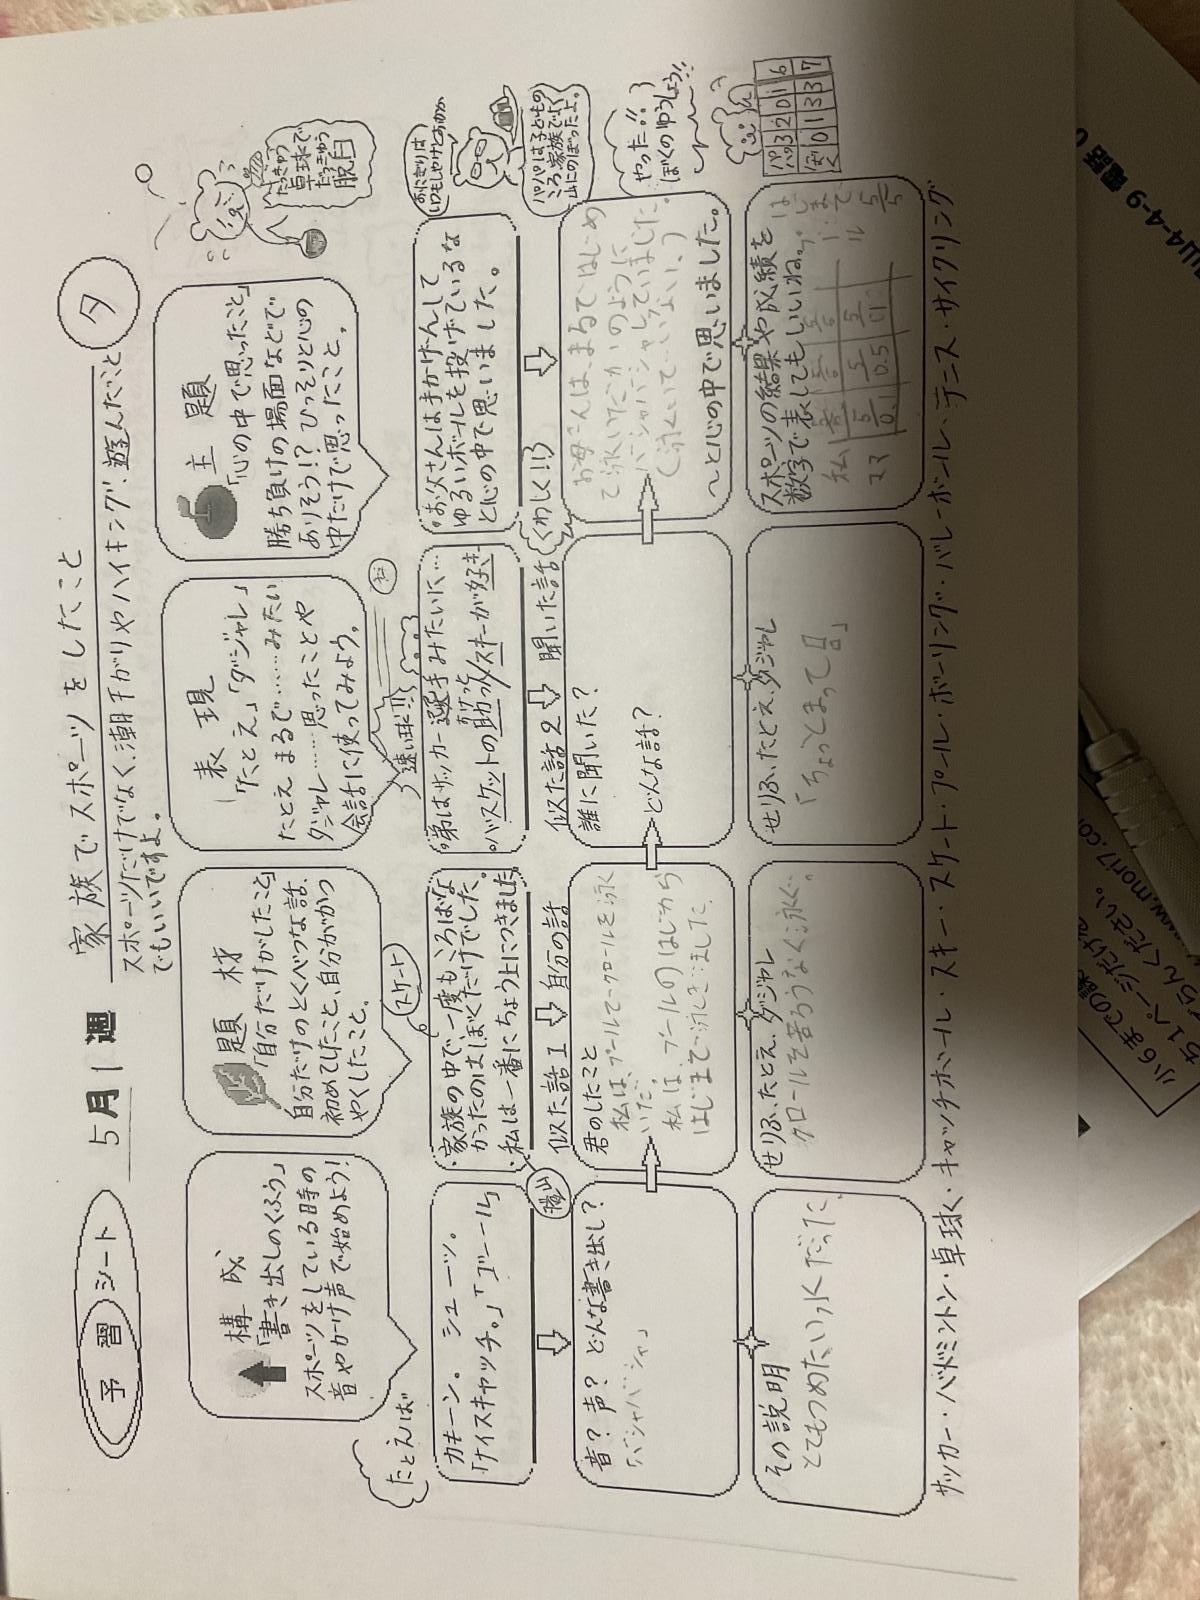 予習シート
5月1週
家族でスポーツをしたこと
タ
スポーツだけでなく、潮干がりやハイキング、遊んだこと
でもいいですよ。
構成
「書き出しのくふう」
スポーツをしている時の
音やかけ声で始めよう!
題材
「自分だけがしたこと」
自分だけのとくべつな話、
初めてしたこと、自分がかつ
やくしたこと。
表現
「たとえ」「ダジャレ」
たとえ まるで……みたい
ダジャレ……思ったことや
会話に使ってみよう。
主題
「心の中で思ったこと」
勝ち負けの場面などで
ありそう!? ひっそりと心の
中だけで思ったこと。
卓球で
脱臼
たとえば
カキーン。 シューッ。
「ナイスキャッチ。」「ゴール」
スケート
・家族の中で、一度もころばな
かったのはぼくだけでした。
・私は一番にちょう上につきました。
登山
速い球!!
・弟はサッカー選手みたいに…
・バスケットの助っ人
スキーが好き
・お父さんは手かげんして
ゆるいボールを投げているな
と心の中で思いました。
おにぎりは
パパは子どもの
ころ、家族でよく
山にのぼったよ。
音?声?どんな書き出し?
「バシャバシャ」
似た話1 自分の話
君のしたこと
私は、プールでクロールを泳
いだ。
私は、プールのはじから
はじまで泳ぎました。
似た話2 聞いた話
誰に聞いた?
どんな話?
くわしく!!
お母さんは、まるではじめ
て泳いだかのように
バシャバシャしていました。
(泳いで…いない、)
~と心の中で思いました。
やった!!
ぼくのゆうしょう!!
パパ 3 2 0 1 6
ぼく 0 1 3 3 7
その説明
とてもつめたい水だった
せりふ、たとえ、ダジャレ
クロールを苦ろうなく泳ぐ。
せりふ、たとえ、ダジャレ
「ちょっとまって」
スポーツの結果や成績を
数字で表してもいいね。
私
ママ
0.1 0.5
サッカー・バドミントン・卓球・キャッチボール・スキー・スケート・プール・ボーリング・バレーボール・テニス・サイクリング
小6までの
ち1ページだけ
らんください。
www.mori7.co
4-4-9 電話0